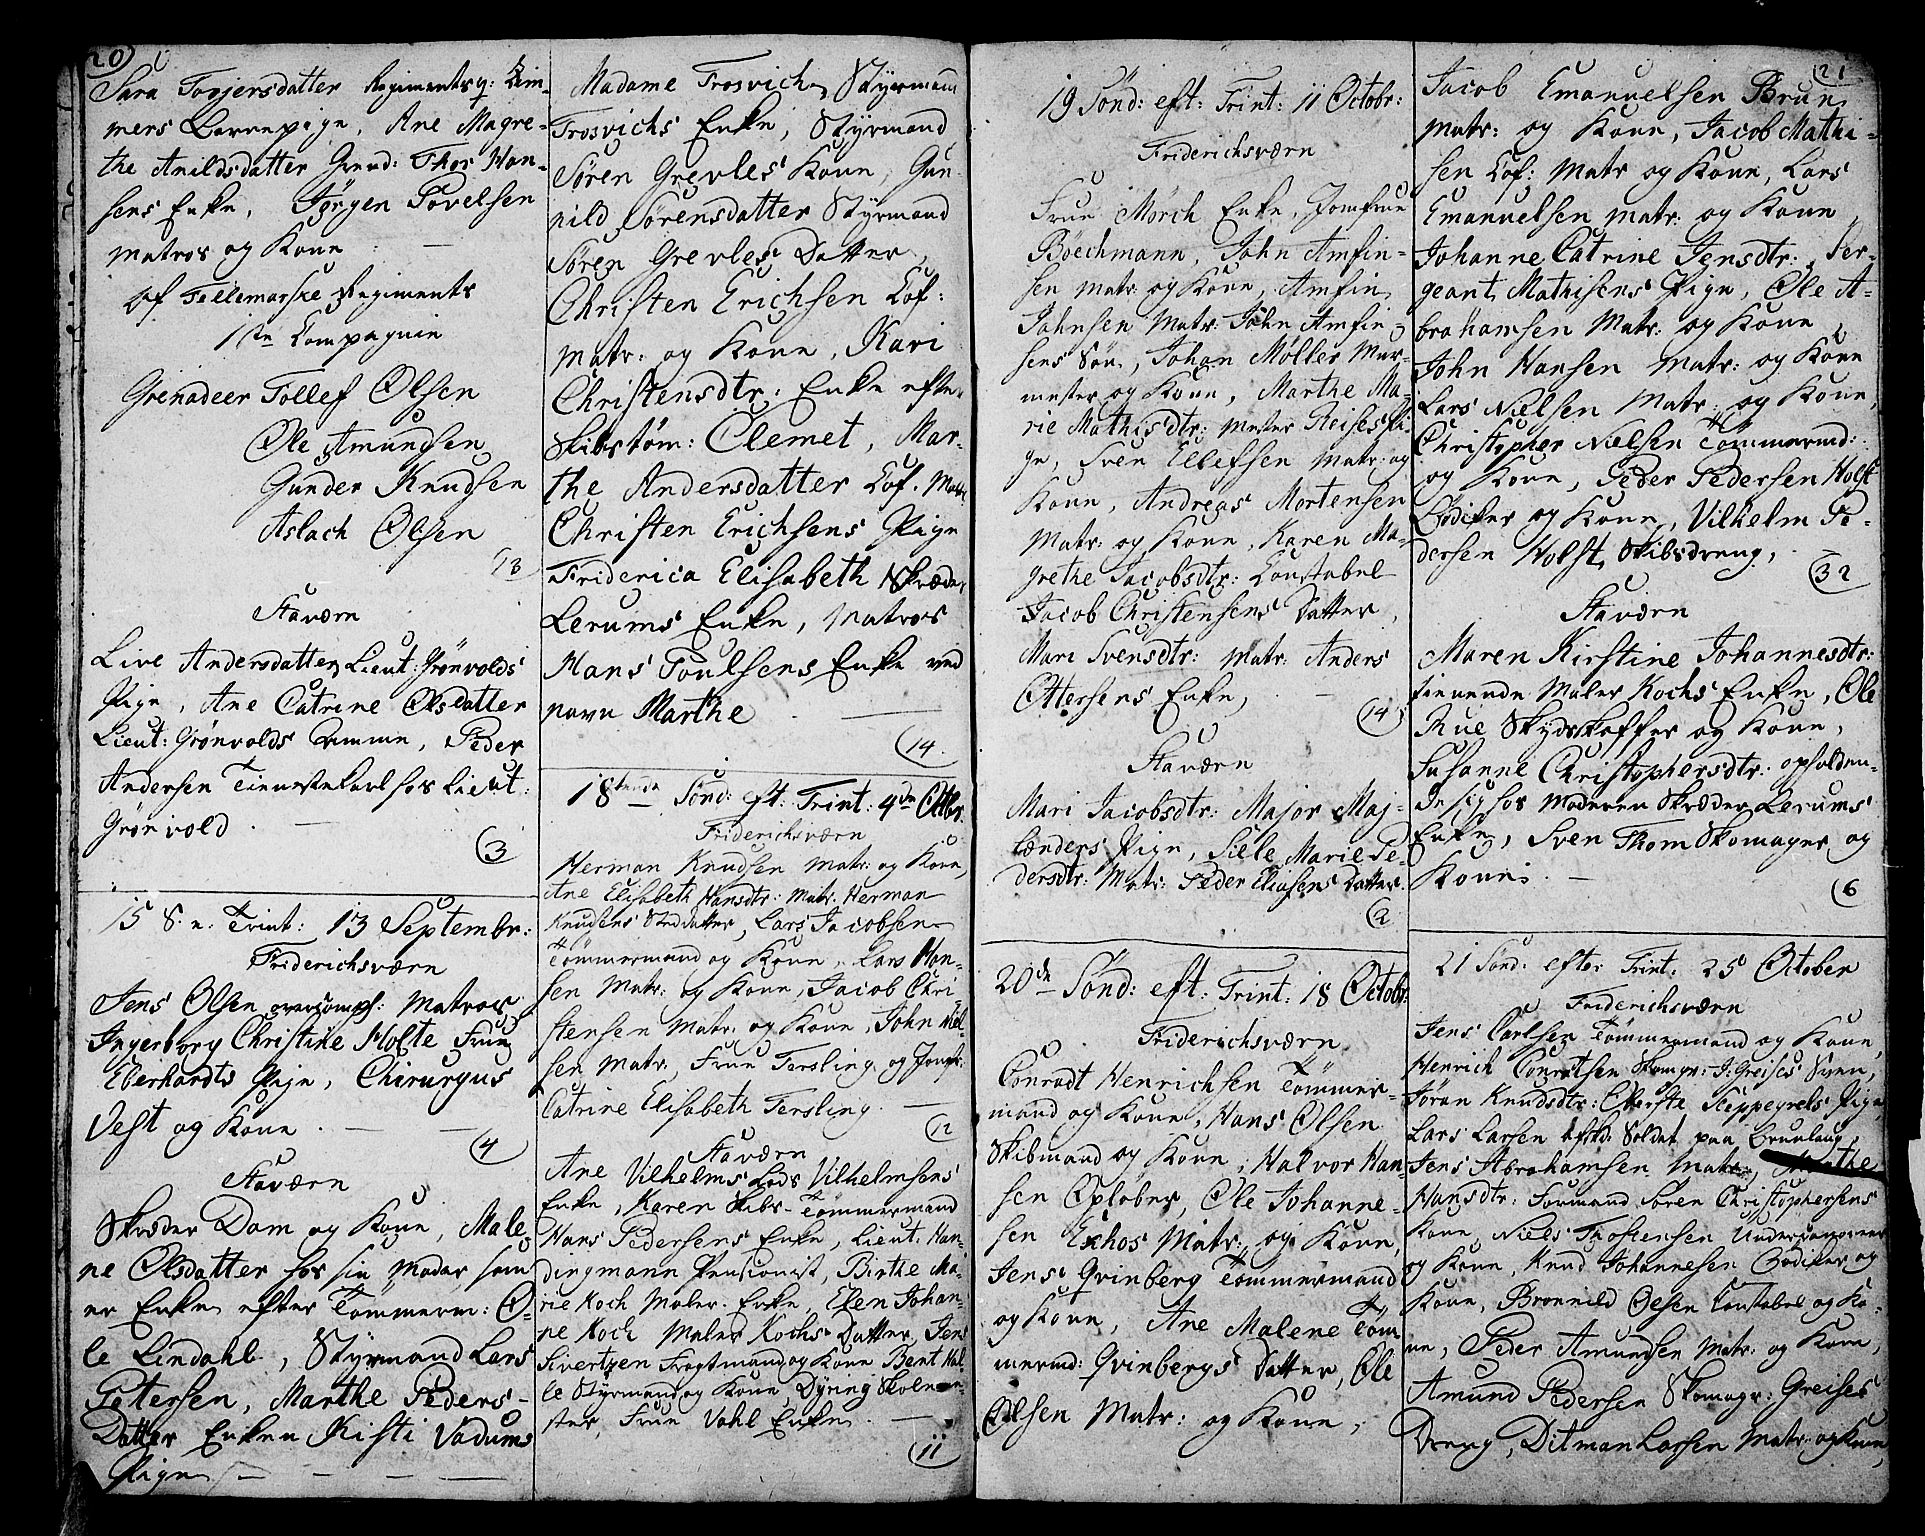 20
Sara Torjersdatter Regimentsq: Lem-
mers Barnepige, Ane Magre-
the Arildsdatter Grend: Thor Han-
sens Enke, Jørgen Povelsen
Matros og Kone : —
af Tellemarske Regiments
1ste Compagnie
Grenadeer Tollef Olsen
Ole Amundsen
Gunder Knudsen
Aslach Olsen
13
Staværn
Live Andersdatter Lieut: Grönvolds
Pige, Ane Catrine Olsdatter
Lieut: Grønvolds Amme, Peder
Andersen Tienestekarl hos Lieut:
Grönvold . —
3
15 S. e. Trint: 13 Septembr:
Friderichsværn
Jens Olsen Matros,
Ingerborg Christine Holte Frue
Eberhardts Pige, Chirurgus
Vest og Kone . — —
4
Staværn
Skræder Dam og Kone, Male-
ne Olsdatter hos sin Moder som
er Enke efter Tömmerm: O-
le Lindahl, Styrmand Lars
Petersen, Marthe Peders-
Datter Enken Kisti Vadums
Pige — — —
Madame Trosvich Styrmand
Trosvichs Enke, Styrmand
Sören Grevles Kone, Gun-
nild Sörensdatter Styrmand
Sören Grevles Datter,
Christen Erichsen Løf:
Matr: og Kone, Kari
Christensdtr: Enke efter
Skibstøm: Clemet, Mar-
the Andersdatter Løf. Matr
Christen Erichsens Pige
Friderica Elisabeth Skræder
Lerums Enke, Matros
Hans Poulsens Enke ved
navn Marthe . —
14
18tende Sönd: eft: Trint: 4de Octbr:
Friderichsværn
Herman Knudsen Matr: og Kone,
Ane Elisabeth Hansdtr: Matr. Herman
Knudsens Steddatter, Lars Jacobsen
Tömmermand og Kone, Lars Han-
sen Matr: og Kone, Jacob Chri-
stensen Matr: og Kone, John Niel-
sen Matr, Frue Tersling og Jomfr:
Catrine Elisabeth Tersling . —
12
Staværn
Ane Vilhelms Lods Vilhelmsens
Enke, Karen Skibs-Tömmermand
Hans Pedersens Enke, Lieut: Han-
dingmann Pensionist, Birthe Ma-
rie Koch Maler Enke, Elen Johan-
ne Koch Maler Kochs Datter, Jens
Sivertzen Fragtmand og Kone Bent Hal-
le Styrmand og Kone, Dyring Skolme-
ster, Frue Vahl Enke . —
11
19 Sönd: eft: Trint: 11 Octobr:
Friderichsværn
Frue Mörch Enke, Jomfrue
Böechmann, John Amfin-
sen Matr: og Kone, Amfin
Johnsen Matr: John Amfin-
sens Sön, Johan Møller Mur-
mester og Kone, Marthe Ma-
rie Mathisdtr: Mester Reises Pi-
ge, Sven Ellefsen Matr: og
Kone, Andreas Mortensen
Matr: og Kone, Karen Ma-
grethe Jacobsdtr: Constabel
Jacob Christensens Datter,
Mari Svensdtr: Matr: Anders
Ottersens Enke, . —
14
Staværn
Mari Jacobsdtr: Major Maj-
lænders Pige, Siele Marie Pe-
dersdtr: Matr: Peder Eliasens Datter
2
20de Sönd: eft: Trint: 18 Octobr:
Friderichsværn
Conradt Henrichsen Tömmer-
mand og Kone, Hans Olsen
Skibmand og Kone, Halvor Han-
sen Opløber, Ole Johanne-
sen Exhos Matr: og Kone,
Jens Qvinberg Tömmermand
og Kone, Ane Malene Töm
mermd: Qvinbergs Datter, Ole
Olsen Matr: og Kone,
21
Jacob Emanuelsen Brun
Matr: og Kone, Jacob Mathi-
sen Løf: Matr og Kone, Lars
Emanuelsen Matr: og Kone,
Johanne Catrine Jensdtr: Ser-
geant Mathisens Pige, Ole A-
brahamsen Matr: og Kone,
John Hansen Matr: og Kone
Lars Nielsen Matr: og Kone,
Christopher Nielsen Tömmermd:
og Kone, Peder Pedersen Holst
Bödiker og Kone, Vilhelm Pe-
dersen Holst Skibsdreng, . —
32
Staværn
Maren Kirstine Johannesdtr:
tienende Maler Kochs Enke, Ole
Rue Skydskaffer og Kone,
Susanne Christophersdtr: opholden-
de sig hos Moderen Skræder Lerums
Enke, Sven Thom Skomager og
Kone. —
6
21 Sönd: efter Trint: 25 October
Friderichsværn
Jens Carlsen Tömmermand og Kone,
Henrich Conratsen Skomgr: J: Greises Svenn,
Jöran Knudsdtr: Oberste Steppegrels Pige
Lars Larsen Afskd: Soldat paa Brunlaug
Jens Abrahamsen Matr:, Marthe
Hansdtr: Formand Søren Christophersens
Kone, Niels Thostensen Undercanoneer
og Kone, Knud Johannesen Bödiker og
Kone, Brönnild Olsen Constabel og Ko-
ne, Peder Amundsen Matr: og Kone,
Amund Pedersen Skomagr: Greises
Dreng, Ditman Larsen Matr: og Kone,